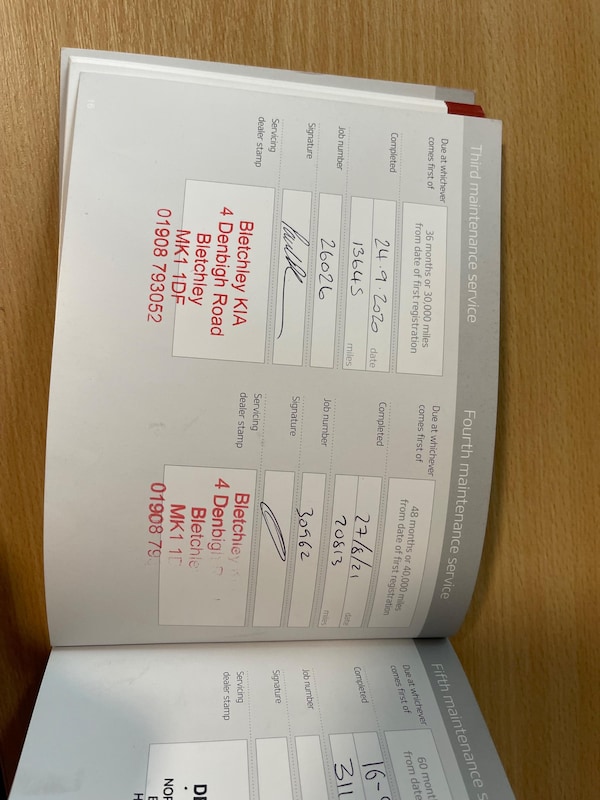 Third maintenance service
Due at whichever
comes first of
36 months or 30,000 miles
from date of first registration
Completed
24.9.2020 date
13645 miles
Job number
26026
Signature
Servicing
dealer stamp
Bletchley KIA
4 Denbigh Road
Bletchley
MK1 1DF
01908 793052
Fourth maintenance service
Due at whichever
comes first of
48 months or 40,000 miles
from date of first registration
Completed
27/8/21 date
20813 miles
Job number
30962
Signature
Servicing
dealer stamp
Bletchley
4 Denbigh
Bletchle
MK1 1
01908 79
Fifth maintenance s
Due at whichever
comes first of
60 mont
from date
Completed
16-
311
Job number
Signature
Servicing
dealer stamp
NOR